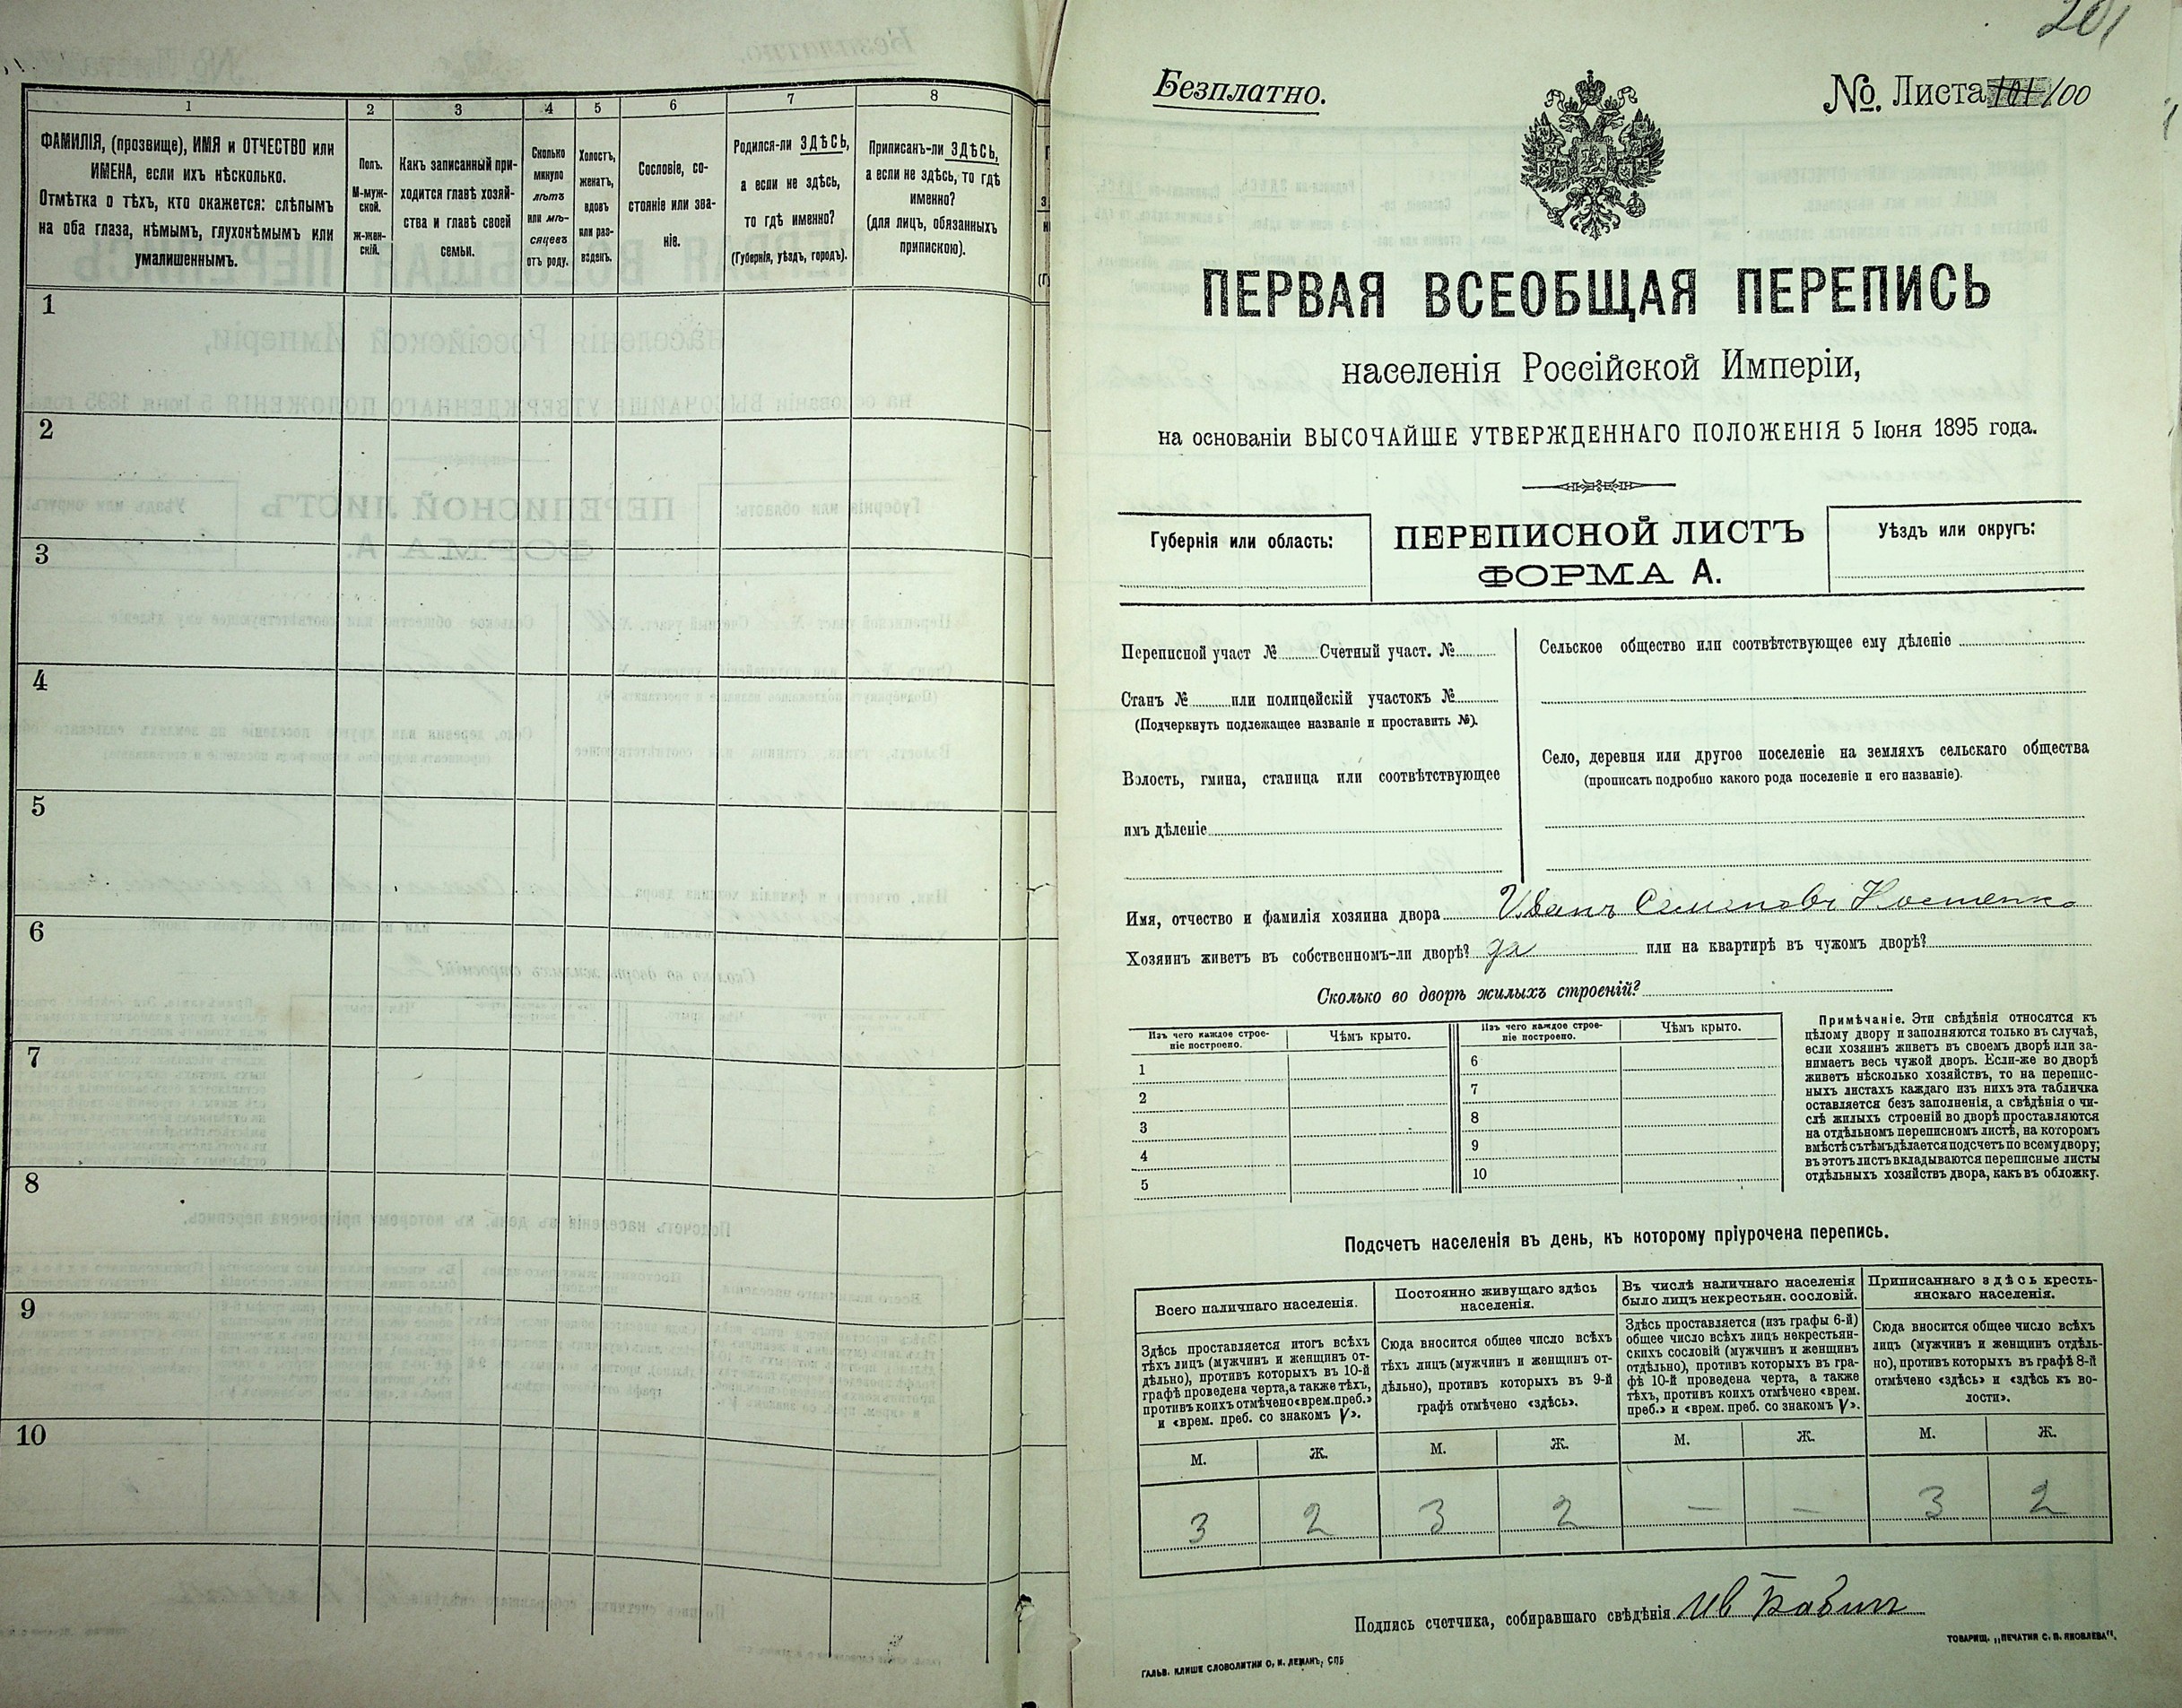 1
2
3
4
5
6
7
8
ФАМИЛІЯ, (прозвище), ИМЯ и ОТЧЕСТВО или
ИМЕНА, если ихъ нѣсколько.
Отмѣтка о тѣхъ, кто окажется: слѣпымъ
на оба глаза, нѣмымъ, глухонѣмымъ или
умалишеннымъ.
Полъ.
М-муж-
ской.
ж-жен-
скій.
Какъ записанный при-
ходится главѣ хозяй-
ства и главѣ своей
семьи.
Сколько
минуло
лѣтъ
или мѣ-
сяцевъ
отъ роду.
Холостъ,
женатъ,
вдовъ
или раз-
веденъ.
Сословіе, со-
стояніе или зва-
ніе.
Родился-ли ЗДѢСЬ,
а если не здѣсь,
то гдѣ именно?
(Губернія, уѣздъ, городъ).
Приписанъ-ли ЗДѢСЬ,
а если не здѣсь, то гдѣ
именно?
(для лицъ, обязанныхъ
припискою).
1
2
3
4
5
6
7
8
9
10
201
Безплатно.
№. Листа 101 100
ПЕРВАЯ ВСЕОБЩАЯ ПЕРЕПИСЬ
населенія Россійской Имперіи,
на основаніи ВЫСОЧАЙШЕ УТВЕРЖДЕННАГО ПОЛОЖЕНІЯ 5 Іюня 1895 года.
Губернія или область:
ПЕРЕПИСНОЙ ЛИСТЪ
ФОРМА А.
Уѣздъ или округъ:
Переписной участ № Счетный участ. №
Станъ № или полицейскій участокъ №
(Подчеркнуть подлежащее названіе и проставить №).
Волость, гмина, станица или соотвѣтствующее
имъ дѣленіе
Сельское общество или соотвѣтствующее ему дѣленіе
Село, деревня или другое поселеніе на земляхъ сельскаго общества
(прописать подробно какого рода поселеніе и его названіе).
Имя, отчество и фамилія хозяина двора Иванъ Семеновъ Костенко
Хозяинъ живетъ въ собственномъ-ли дворѣ? да или на квартирѣ въ чужомъ дворѣ?
Сколько во дворѣ жилыхъ строеній?
Изъ чего каждое строе-
ніе построено.
Чѣмъ крыто.
Изъ чего каждое строе-
ніе построено.
Чѣмъ крыто.
1
2
3
4
5
6
7
8
9
10
Примѣчаніе. Эти свѣдѣнія относятся къ
цѣлому двору и заполняются только въ случаѣ,
если хозяинъ живетъ въ своемъ дворѣ или за-
нимаетъ весь чужой дворъ. Если-же во дворѣ
живетъ нѣсколько хозяйствъ, то на перепис-
ныхъ листахъ каждаго изъ нихъ эта табличка
оставляется безъ заполненія, а свѣдѣнія о чи-
слѣ жилыхъ строеній во дворѣ проставляются
на отдѣльномъ переписномъ листѣ, на которомъ
вмѣстѣ съ тѣмъ дѣлается подсчетъ по всему двору;
въ этотъ листъ вкладываются переписные листы
отдѣльныхъ хозяйствъ двора, какъ въ обложку.
Подсчетъ населенія въ день, къ которому пріурочена перепись.
Всего наличнаго населенія.
Постоянно живущаго здѣсь
населенія.
Въ числѣ наличнаго населенія
было лицъ некрестьян. сословій.
Приписаннаго здѣсь кресть-
янскаго населенія.
Здѣсь проставляется итогъ всѣхъ
тѣхъ лицъ (мужчинъ и женщинъ от-
дѣльно), противъ которыхъ въ 10-й
графѣ проведена черта, а также тѣхъ,
противъ коихъ отмѣчено «врем. преб.»
и «врем. преб. со знакомъ V».
Сюда вносится общее число всѣхъ
тѣхъ лицъ (мужчинъ и женщинъ от-
дѣльно), противъ которыхъ въ 9-й
графѣ отмѣчено «здѣсь».
Здѣсь проставляется (изъ графы 6-й)
общее число всѣхъ лицъ некрестьян-
скихъ сословій (мужчинъ и женщинъ
отдѣльно), противъ которыхъ въ гра-
фѣ 10-й проведена черта, а также
тѣхъ, противъ коихъ отмѣчено «врем.
преб.» и «врем. преб. со знакомъ V».
Сюда вносится общее число всѣхъ
лицъ (мужчинъ и женщинъ отдѣль-
но), противъ которыхъ въ графѣ 8-й
отмѣчено «здѣсь» и «здѣсь къ во-
лости».
М. Ж. М. Ж. М. Ж. М. Ж.
3 2 3 2 — — 3 2
Подпись счетчика, собиравшаго свѣдѣнія Ив Бабин
ГАЛЬВ. КЛИШЕ СЛОВОЛИТНИ О. И. ЛЕМАНЪ, СПБ
ТОВАРИЩ. „ПЕЧАТНЯ С. П. ЯКОВЛЕВА".